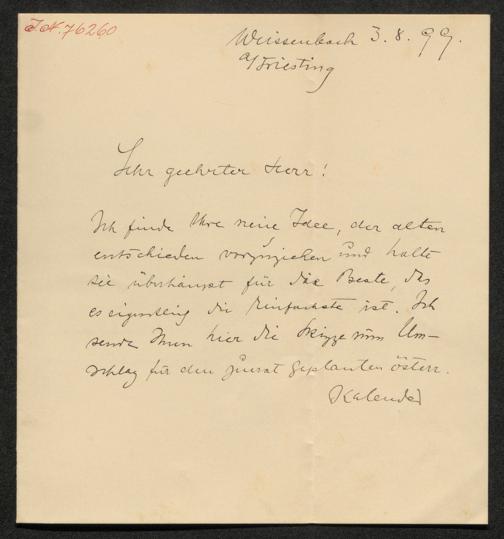 J.N. 76260
Weissenbach 3.8.99.
a/Triesting
Sehr geehrter Herr!
Ich finde Ihre neue Idee, der alten
entschieden vorzuziehen und halte
sie überhaupt für das Beste, da
es eigentlich die Einfachste ist. Ich
sende Ihnen hier die Skizze zum Um-
schlag für den zuerst geplanten österr.
Kalender